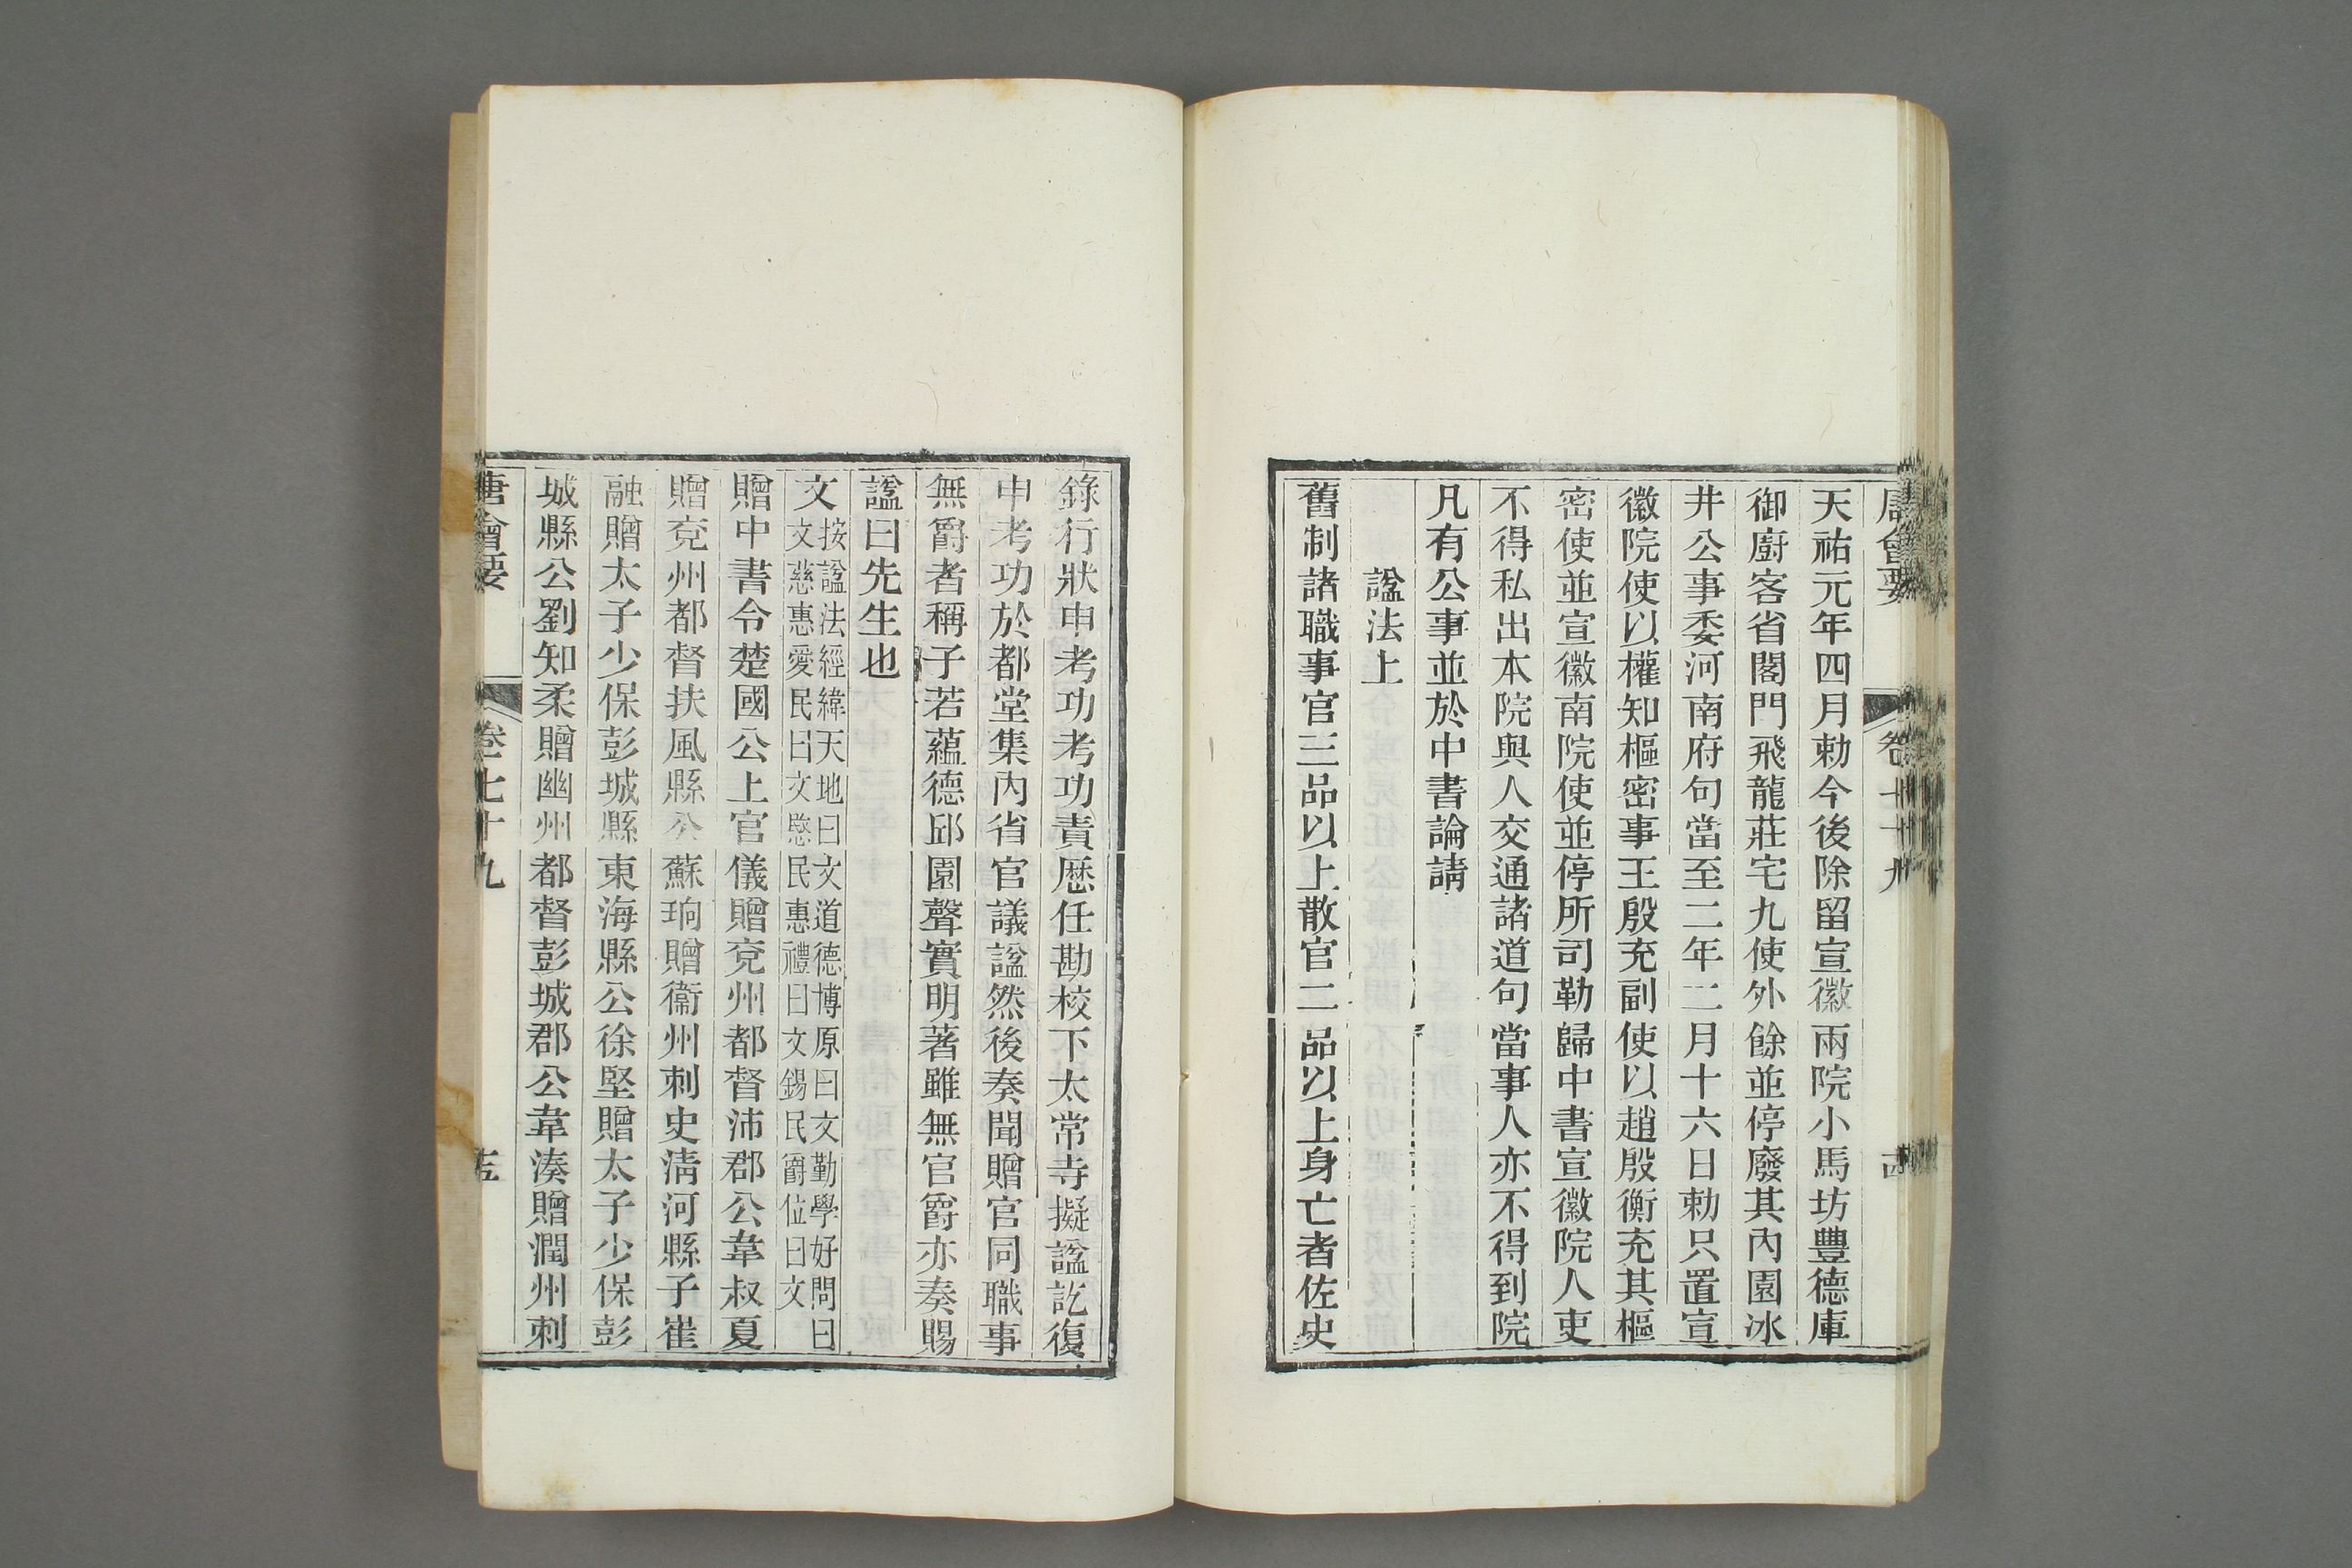 唐會要 卷七十九 十四
天祐元年四月勅今後除留宣徽兩院小馬坊豐德庫
御廚客省閤門飛龍莊宅九使外餘並停廢其內園冰
井公事委河南府句當至二年二月十六日勅只置宣
徽院使以權知樞密事王殷充副使以趙殷衡充其樞
密使並宣徽南院使並停所司勒歸中書宣徽院人吏
不得私出本院與人交通諸道句當事人亦不得到院
凡有公事並於中書論請
諡法上
舊制諸職事官三品以上散官二品以上身亡者佐史
錄行狀申考功考功責歷任勘校下太常寺擬諡訖復
申考功於都堂集內省官議諡然後奏聞贈官同職事
無爵者稱子若蘊德邱園聲實明著雖無官爵亦奏賜
諡曰先生也
文
按諡法經緯天地曰文道德博原曰文勤學好問曰
文慈惠愛民曰文愍民惠禮曰文錫民爵位曰文
贈中書令楚國公上官儀贈兗州都督沛郡公韋叔夏
贈兗州都督扶風縣公蘇珦贈衞州刺史淸河縣子崔
融贈太子少保彭城縣東海縣公徐堅贈太子少保彭
城縣公劉知柔贈幽州都督彭城郡公韋湊贈潤州刺
唐會要 卷七十九 十五